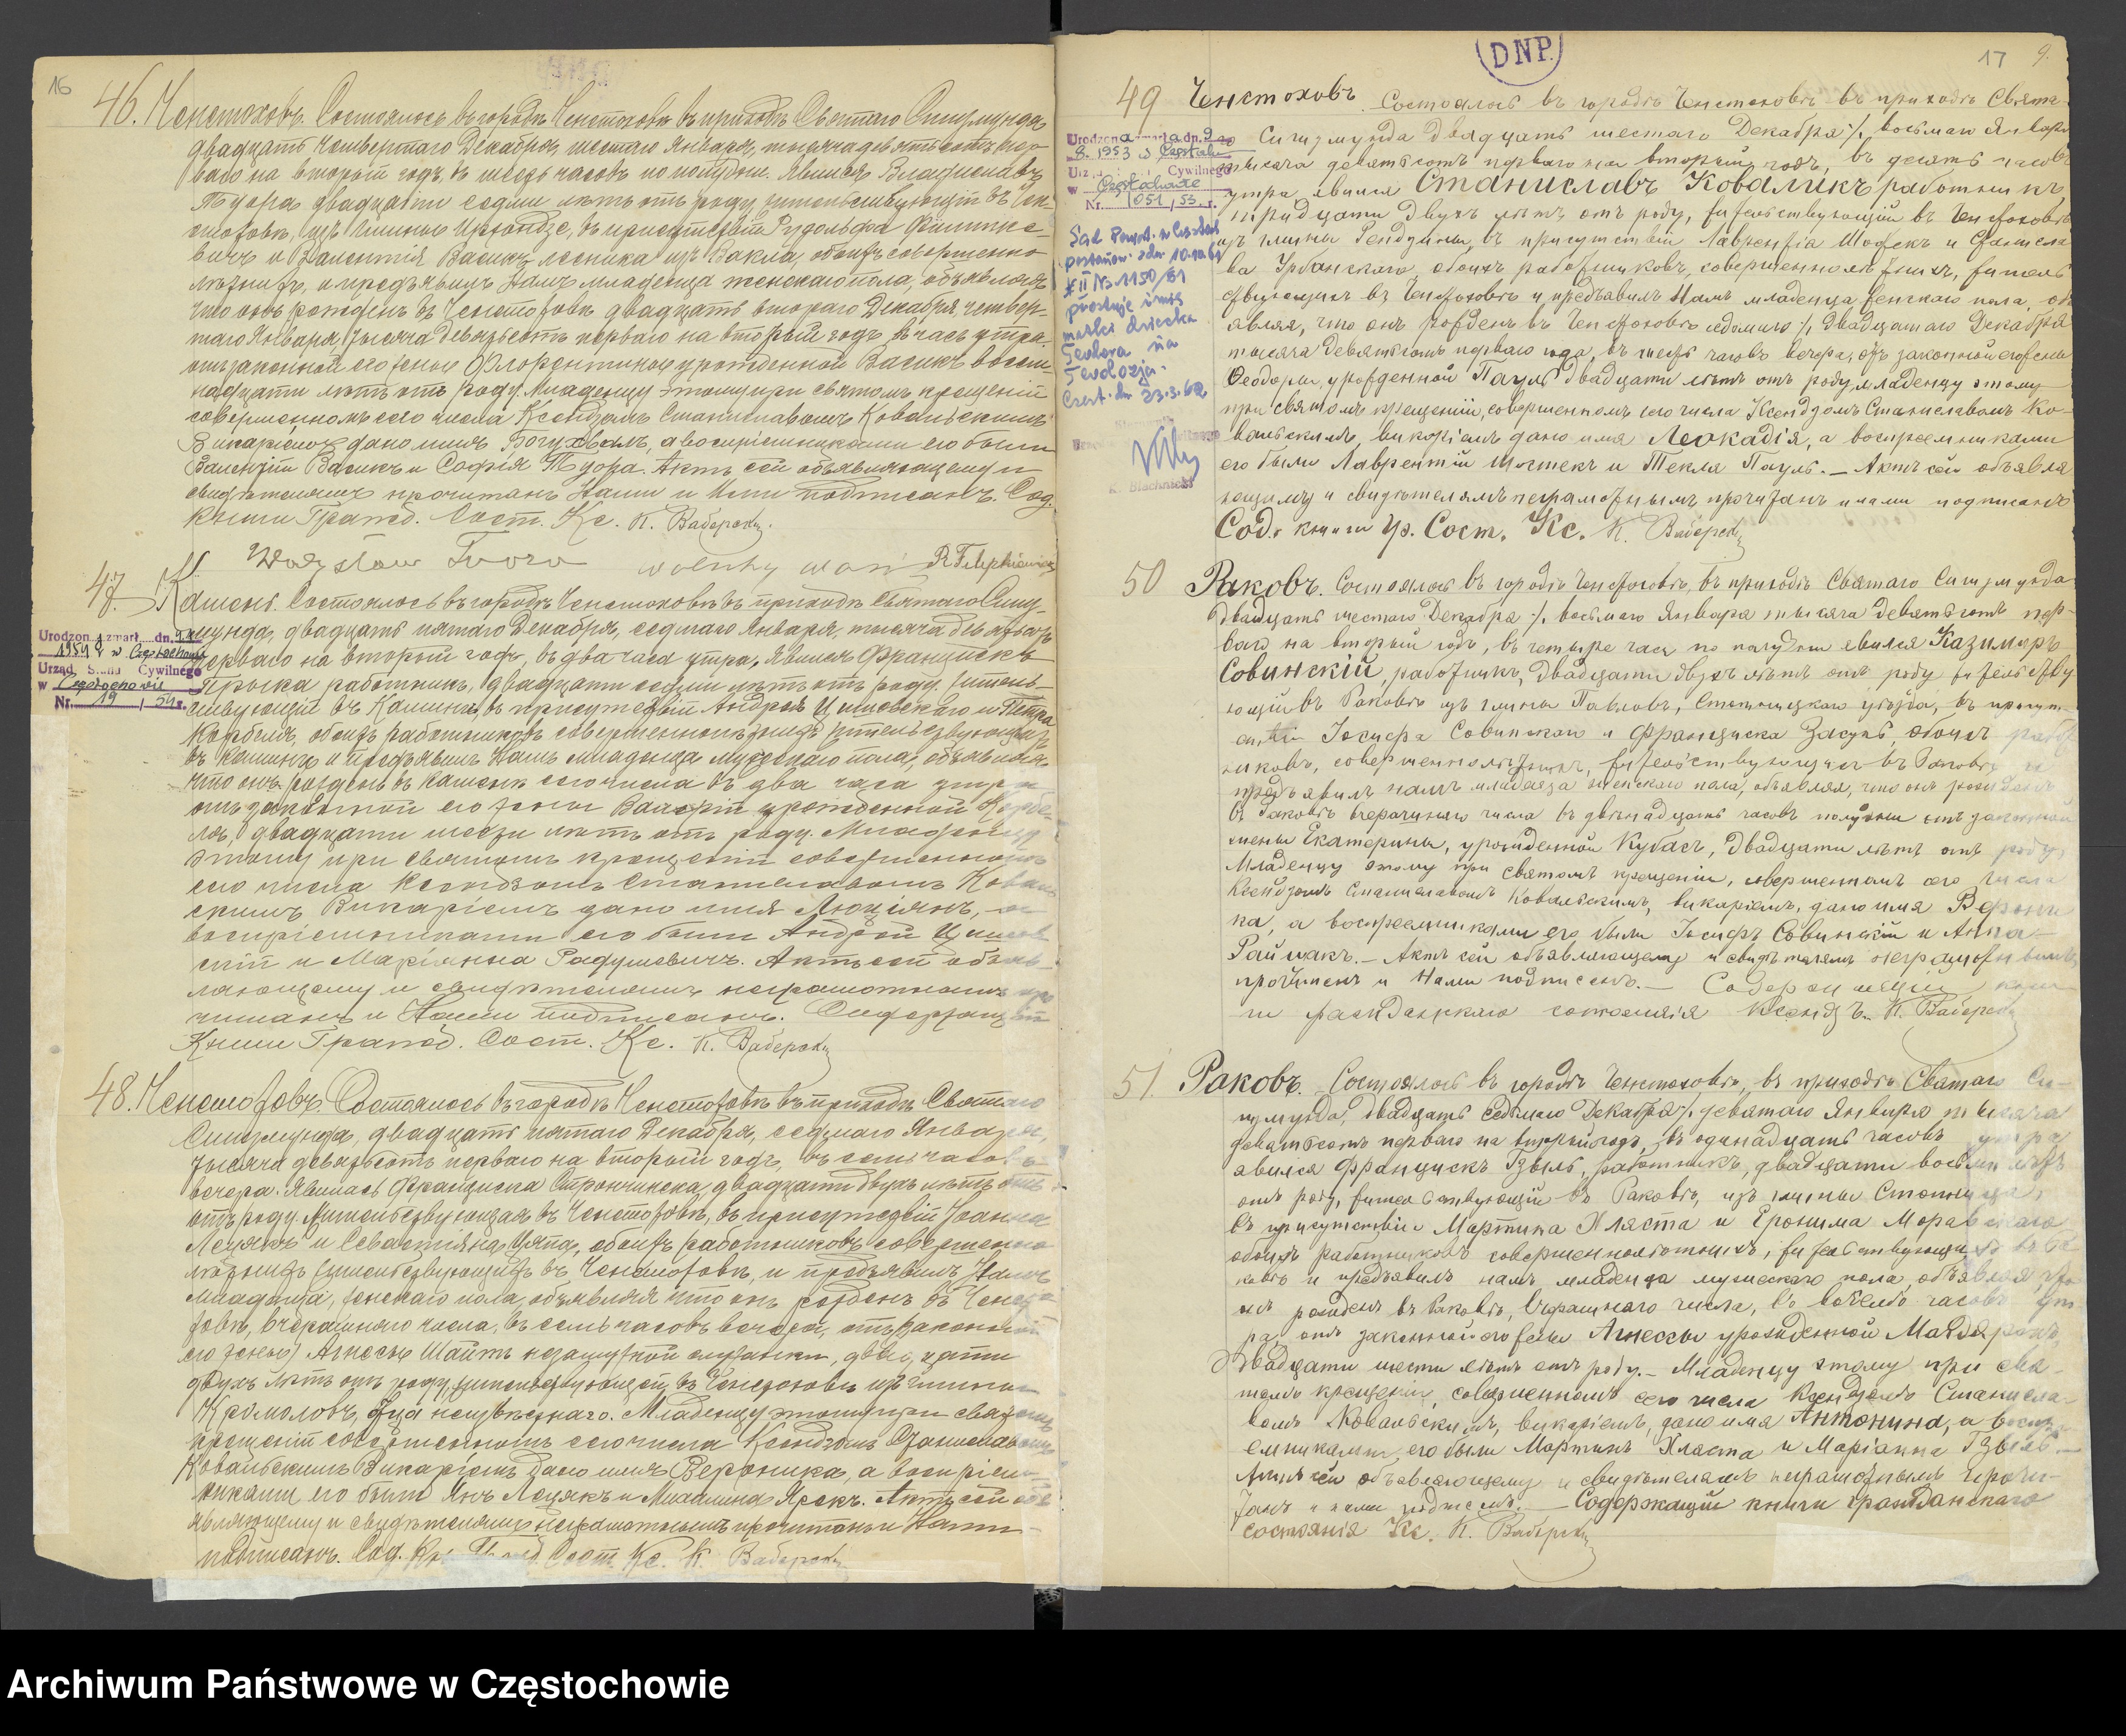 16
46. Ченстоховъ. Состоялось въ городѣ Ченстоховѣ въ приходѣ Святаго Сигизмунда
двадцать четвертаго Декабря, шестаго Января, тысяча девятьсотъ пер-
ваго на второй годъ, въ шесть часовъ по полудни. Явился Владиславъ
Твора двадцати седми лѣтъ отъ роду, жительствующій въ Чен-
стоховѣ, изъ гмины, въ присутствіи Рудольфа Филипке-
вичъ и Валентія Васикъ, обоихъ совершенно-
лѣтнихъ, и предъявилъ Намъ младенца женскаго пола, объявляя
что онъ рожденъ въ Ченстоховѣ двадцать втораго Декабря, четвер-
таго Января, тысяча девятьсотъ перваго на второй годъ, въ часъ утра
отъ законной его жены Флорентины урожденной Васикъ восем-
надцати лѣтъ отъ роду. Младенцу этому при святомъ крещеніи
совершенномъ сего числа Ксендзомъ Станиславомъ Ковальскимъ
Викаріемъ дано имя, а воспріемниками его были
Валентій Васикъ и Софія Твора. Актъ сей объявляющему и
свидѣтелямъ прочитанъ Нами и Ими подписанъ. Сод.
Книги Гражд. Сост. Кс. К. Ваберски
Władysław Twora R Filipkiewicz
47. Камень. Состоялось въ городѣ Ченстоховѣ въ приходѣ Святаго Сиги-
змунда, двадцать пятаго Декабря, седмаго Января, тысяча девятьсотъ
перваго на второй годъ, въ два часа утра, явился Францискъ
работникъ, двадцати седми лѣтъ отъ роду, житель-
ствующій въ, въ присутствіи Андрея и Петра
обоихъ работниковъ совершеннолѣтнихъ жительствующихъ
въ и предъявилъ Намъ младенца мужескаго пола, объявляя
что онъ рожденъ въ Каменѣ сего числа въ два часа утра
отъ законной его жены Валеріи урожденной
двадцати шести лѣтъ отъ роду. Младенцу
этому при святомъ крещеніи совершенномъ
сего числа Ксендзомъ Станиславомъ Коваль-
скимъ Викаріемъ дано имя Люціянъ, а
воспріемниками его были Андрей
скій и Маріянна Радушевичъ. Актъ сей объяв-
ляющему и свидѣтелямъ неграмотнымъ про-
читанъ и Нами подписанъ. Содержащій
Книги Гражд. Сост. Кс. К. Ваберски
Urodzon zmarł dn.
1954 r w Częstochowie
Urząd Stanu Cywilnego
w Częstochowie
Nr. 19 / 54 r.
48. Ченстоховъ. Состоялось въ городѣ Ченстоховѣ въ приходѣ Святаго
Сигизмунда, двадцать пятаго Декабря, седмаго Января,
тысяча девятьсотъ перваго на второй годъ, въ семь часовъ
вечера. Явилась Франциска Строчинска, двадцати двухъ лѣтъ
отъ роду, жительствующая въ Ченстоховѣ, въ присутствіи Іоанна
Лецякъ и Севастіяна Цяпа, обоихъ работниковъ совершенно
лѣтнихъ жительствующихъ въ Ченстоховѣ, и предъявилъ Намъ
младенца, женскаго пола, объявляя что онъ рожденъ въ Ченсто-
ховѣ, вчерашняго числа, въ семь часовъ вечера, отъ законной
его жены Агнесы Шайтъ незамужной служанки, двадцати
двухъ лѣтъ отъ роду, жительствующей въ Ченстоховѣ изъ гмины
Кромоловъ, отца неизвѣстнаго. Младенцу этому при святомъ
крещеніи совершенномъ сего числа Ксендзомъ Станиславомъ
Ковальскимъ Викаріемъ дано имя Вероника, а воспріем-
никами его были Янъ Лецякъ и Михалина Ярекъ. Актъ сей объ-
являющему и свидѣтелямъ неграмотнымъ прочитанъ и Нами
подписанъ. Сод. Кн. Гражд. Сост. Кс. К. Ваберски
DNP.
17 9.
49 Ченстоховъ. Состоялось въ городѣ Ченстоховѣ въ приходѣ Свята-
Сигизмунда двадцать шестаго Декабря /. восьмаго Января
тысяча девятьсотъ перваго на второй годъ, въ десять часовъ
утра, явился Станиславъ Коваликъ работникъ,
тридцати двухъ лѣтъ отъ роду, жительствующій въ Ченстоховѣ
изъ гмины Рендзины, въ присутствіи Лаврентія Шостекъ и Станисла-
ва Урбанскаго, обоихъ работниковъ, совершеннолѣтнихъ, житель
ствующихъ въ Ченстоховѣ и предъявилъ Намъ младенца женскаго пола, объ
являя, что онъ рожденъ въ Ченстоховѣ седьмаго /. двадцатаго Декабря
тысяча девятьсотъ перваго года, въ шесть часовъ вечера, отъ законной его жены
Ѳеодоры, урожденной Пауль двадцати лѣтъ отъ роду, младенцу этому
при святомъ крещеніи, совершенномъ сего числа Ксендзомъ Станиславомъ Ко-
вальскимъ, викаріемъ дано имя Леокадія, а воспреемниками
его были Лаврентій Шостекъ и Текля Пауль. — Актъ сей объявля
ющему и свидѣтелямъ неграмотнымъ прочитанъ и нами подписанъ
Сод. книги Гр. Сост. Кс. К. Ваберски
Urodzona zmarła dn. 9
8. 1953 w Częstoch
Urząd Stanu Cywilnego
w Częstochowie
Nr. 1051 / 53 r.
Sąd Powiat. w Częstoch
postanow. z dn 10.10.61
# II Ns 1150/61
prostuje imię
matki dziecka
Teodora na
Teodozja.
Czest. dn 23.3.62
K. Blachnicki
50 Раковъ. Состоялось въ городѣ Ченстоховѣ, въ приходѣ Святаго Сигизмунда
двадцать шестаго Декабря /. восьмаго Января тысяча девятьсотъ пер-
ваго на вторый годъ, въ четыре часа по полудни явился Казимиръ
Совинскій, работникъ, двадцати двухъ лѣтъ отъ роду жительству
ющій въ Раковѣ изъ гмины Павловъ, Стопницкаго уѣзда, въ присут-
ствіи Іосифа Совинскаго и Франциска Засунь, обоихъ работ
никовъ, совершеннолѣтнихъ, жительствующихъ въ Раковѣ и
предъявилъ намъ младенца женскаго пола, объявляя, что онъ рожденъ
въ Раковѣ вчерашняго числа въ двѣнадцать часовъ полудни отъ законной
жены Екатерины, урожденной Кубасъ, двадцати лѣтъ отъ роду.
Младенцу этому при святомъ крещеніи, совершенномъ сего числа
Ксендзомъ Станиславомъ Ковальскимъ, викаріемъ, дано имя Верони
ка, а воспреемниками его были Іосифъ Совинскій и Анна
Раймакъ. — Актъ сей объявляющему и свидѣтелямъ неграмотнымъ
прочитанъ и Нами подписанъ. — Содержащій книги
гражданскаго состоянія Ксендзъ К. Ваберски
51. Раковъ. Состоялось въ городѣ Ченстоховѣ, въ приходѣ Святаго Си-
гизмунда, двадцать седьмаго Декабря /. девятаго Января тысяча
девятьсотъ перваго на вторый годъ, въ одинадцать часовъ утра
явился Францискъ Гзыль, работникъ, двадцати восьми лѣтъ
отъ роду, жительствующій въ Раковѣ, изъ гмины Стопница,
въ присутствіи Мартина Хляста и Еронима Моравскаго
обоихъ работниковъ совершеннолѣтнихъ, жительствующихъ въ Ра
ковѣ и предъявилъ намъ младенца мужескаго пола, объявляя, что
онъ рожденъ въ Раковѣ, вчерашняго числа, въ восемь часовъ ут
ра отъ законной его жены Агнессы урожденной Мандеракъ,
двадцати шести лѣтъ отъ роду. — Младенцу этому при свя-
томъ крещеніи, совершенномъ сего числа Ксендзомъ Станисла-
вомъ Ковальскимъ, викаріемъ, дано имя Антонина, а воспре-
емниками его были Мартинъ Хляста и Маріанна Гзыль. —
Актъ сей объявляющему и свидѣтелямъ неграмотнымъ прочи-
танъ и нами подписанъ. — Содержащій книги гражданскаго
состоянія Кс. К. Ваберски
Archiwum Państwowe w Częstochowie